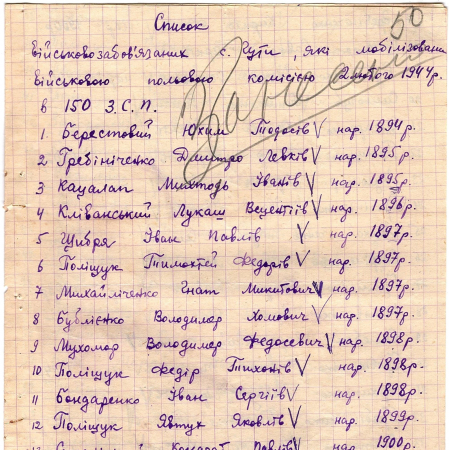 50
Список
військовозабов'язаних с. Кути, які мобілізовани
військовою польовою комісією 2 лютого 1944 р.
в 150 З.С.П.
Занесени
1 Берестовий Юхим Тодосів V нар. 1894 р.
2 Гребініченко Дмитро Левків V нар. 1895 р.
3 Кацалап Мифтодь Іванів V нар. 1895 р.
4 Кліванський Лукаш Вецентіїв V нар. 1896 р.
5 Щибря Іван Павлів V нар. 1897 р.
6 Поліщук Тимохтей Федорів V нар. 1897 р.
7 Михайліченко Гнат Микитович V нар. 1897 р.
8 Бублієнко Володимер Хомович V нар. 1897 р.
9 Мухомор Володимер Федосевич V нар. 1898 р.
10 Поліщук Федір Тихонів V нар. 1898 р.
11 Бондаренко Іван Сергіїв V нар. 1898 р.
12 Поліщук Явтух Яковлів V нар. 1899 р.
Павлів V нар. 1900 р.